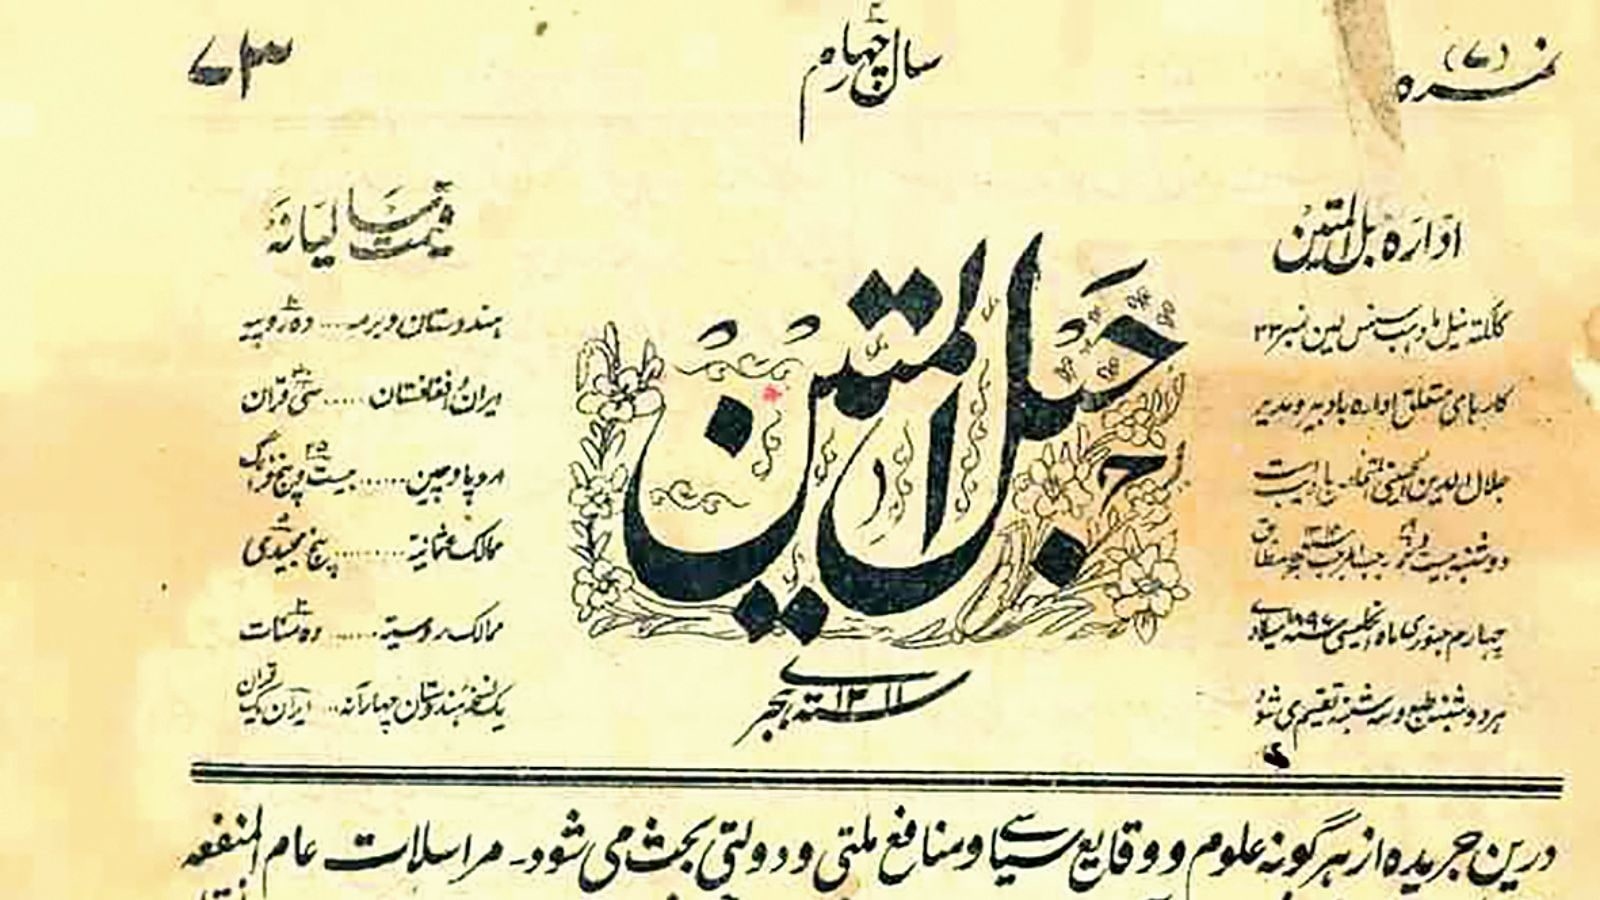 نمره (۷)
سال چهارم ۴
۷۳
اداره حبل المتین
کلکته نیل مادهب سنس لین نمبر ۲۳
کارهای متعلق اداره با دبیر و مدیر
جلال الدین الحسینی با دیب است
دوشنبه بیست و ۲۹ رجب المرجب ۱۳۱۴ مطابق
چهارم جنوری ماه انگلیسی سنه ۱۸۹۷ میلادی
هر دوشنبه طبع و سه شنبه تقسیم می شود
حبل المتین
سنه ۱۳۱۱ هجری
قیمت سالیانه
هندوستان و برمه .... ده روپیه ۱۰
ایران و افغانستان ..... سی قران ۳۰
اروپا و چین ...... بیست و پنج فرانک ۲۵
ممالک عثمانیه .......... پنج مجیدی ۵
ممالک روسیه ...... ده منات ۱۰
یک نسخه هندوستان چهار آنه ... ایران یک قران
درین جریده از هر گونه علوم و وقایع سیاسی و منافع ملتی و دولتی بحث می شود - مراسلات عام المنفعه